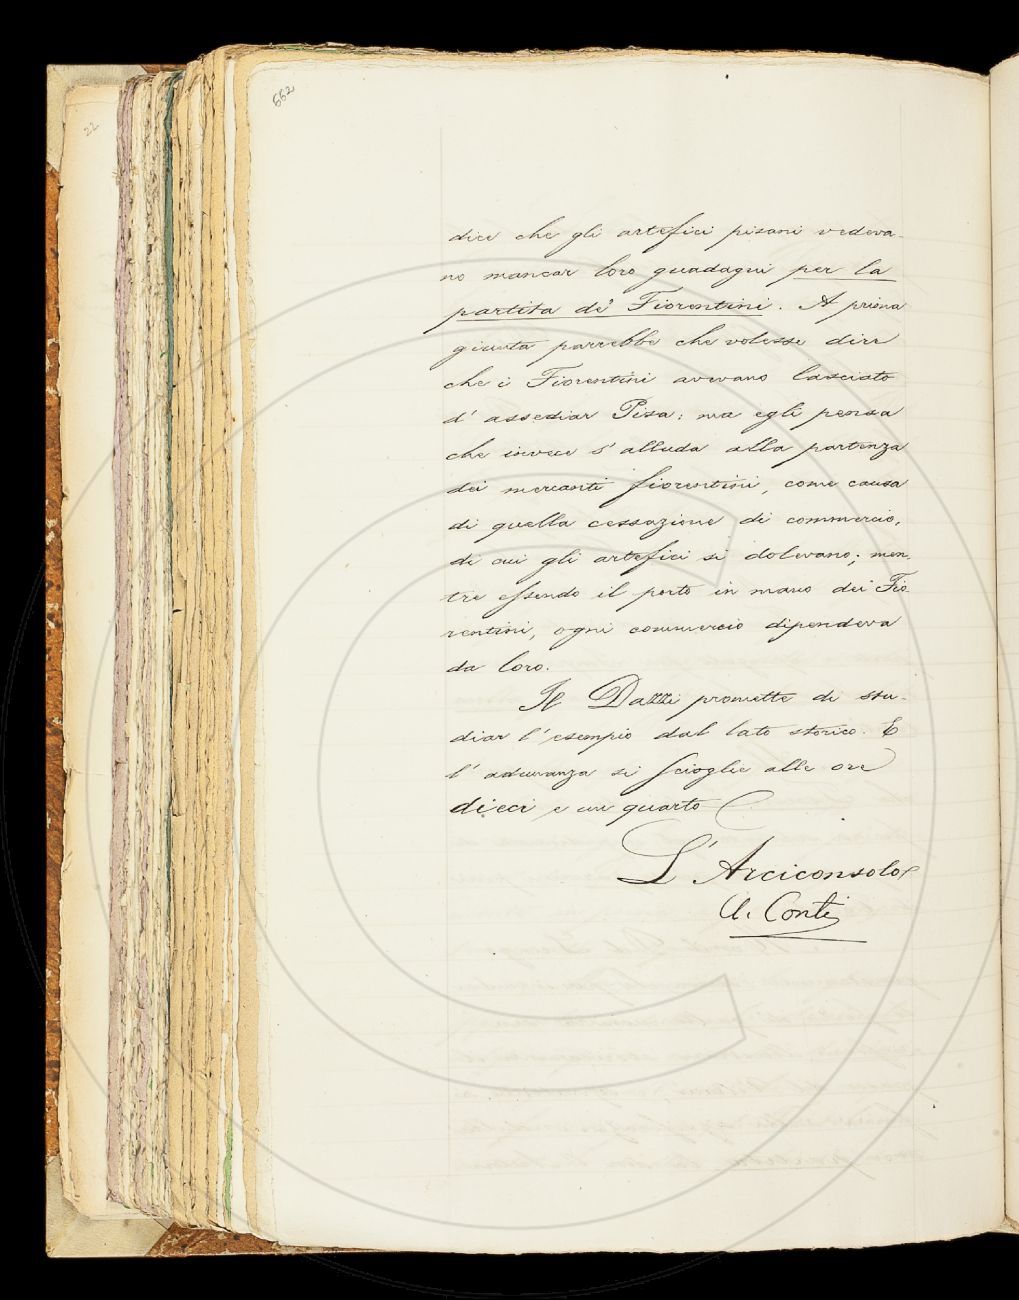 662
22
dice che gli artefici pisani vedeva-
no mancar loro guadagni per la
partita de' Fiorentini. A prima
giunta parrebbe che volesse dire
che i Fiorentini avevano lasciato
d'assediar Pisa: ma egli pensa
che invece s'alluda alla partenza
dei mercanti fiorentini, come causa
di quella cessazione di commercio,
di cui gli artefici si dolevano; men-
tre essendo il porto in mano dei Fio-
rentini, ogni commercio dipendeva
da loro.
Il Dazzi promette di stu-
diar l'esempio dal lato storico. E
l'adunanza si scioglie alle ore
dieci e un quarto
L'Arciconsolo
A. Conti